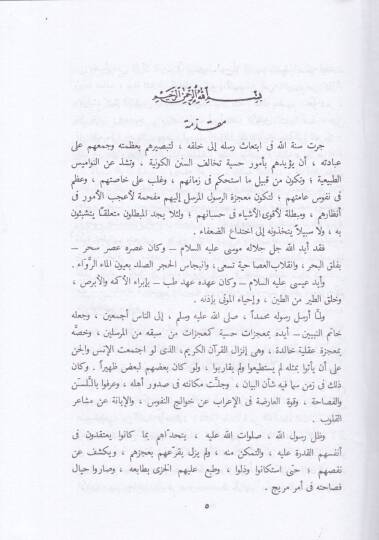 بسم الله الرحمن الرحيم
مقدمة
جرت سنة الله فى ابتعاث رسله إلى خلقه ، لتبصيرهم بعظمته وجمعهم على
عبادته ، أن يؤيدهم بأمور حسية تخالف السنن الكونية ، وتشذ عن النواميس
الطبيعية ؛ وتكون من قبيل ما استحكم فى زمانهم ، وغلب على خاصتهم ، وعظم
فى نفوس عامتهم ؛ لتكون معجزة الرسول المرسل إليهم مفحمة لأعجب الأمور فى
أنظارهم ، ومبطلة لأقوى الأشياء فى حسبانهم ؛ ولئلا يجد المبطلون متعلقًا يتشبثون
به ، ولا سبيلاً يتخذونه إلى اختداع الضعفاء .
فقد أيد الله جل جلاله موسى عليه السلام – وكان عصره عصر سحر –
بفلق البحر ، وانقلاب العصا حية تسعى ، وانبجاس الحجر الصلد بعيون الماء الرَّوَاء .
وأيد عيسى عليه السلام – وكان عهده عهد طب – بإبراء الأكمه والأبرص ،
وخلق الطير من الطين ، وإحياء الموتى بإذنه .
ولمَّا أرسل رسوله محمداً ، صلى الله عليه وسلم ، إلى الناس أجمعين ، وجعله
خاتم النبيين – أيده بمعجزات حسية كمعجزات من سبقه من المرسلين ، وخصَّه
بمعجزة عقلية خالدة ، وهى إنزال القرآن الكريم ، الذى لو اجتمعت الإنس والجن
على أن يأتوا بمثله لم يستطيعوا ولم يقاربوا ، ولو كان بعضهم لبعض ظهيراً . وكان
ذلك فى زمن سما فيه شأن البيان ، وجلَّت مكانته فى صدور أهله ، وعرفوا باللَّسَن
والفصاحة ، وقوة العارضة فى الإعراب عن خوالج النفوس ، والإبانة عن مشاعر
القلوب .
وظل رسول الله ، صلوات الله عليه ، يتحداهم بما كانوا يعتقدون فى
أنفسهم القدرة عليه ، والتمكن منه ، ولم يزل يقرّعهم بعجزهم ، ويكشف عن
نقصهم ؛ حتى استكانوا وذلوا ، وطبع عليهم الخزى بطابعه ، وصاروا حيال
فصاحته فى أمر مريج .
٥